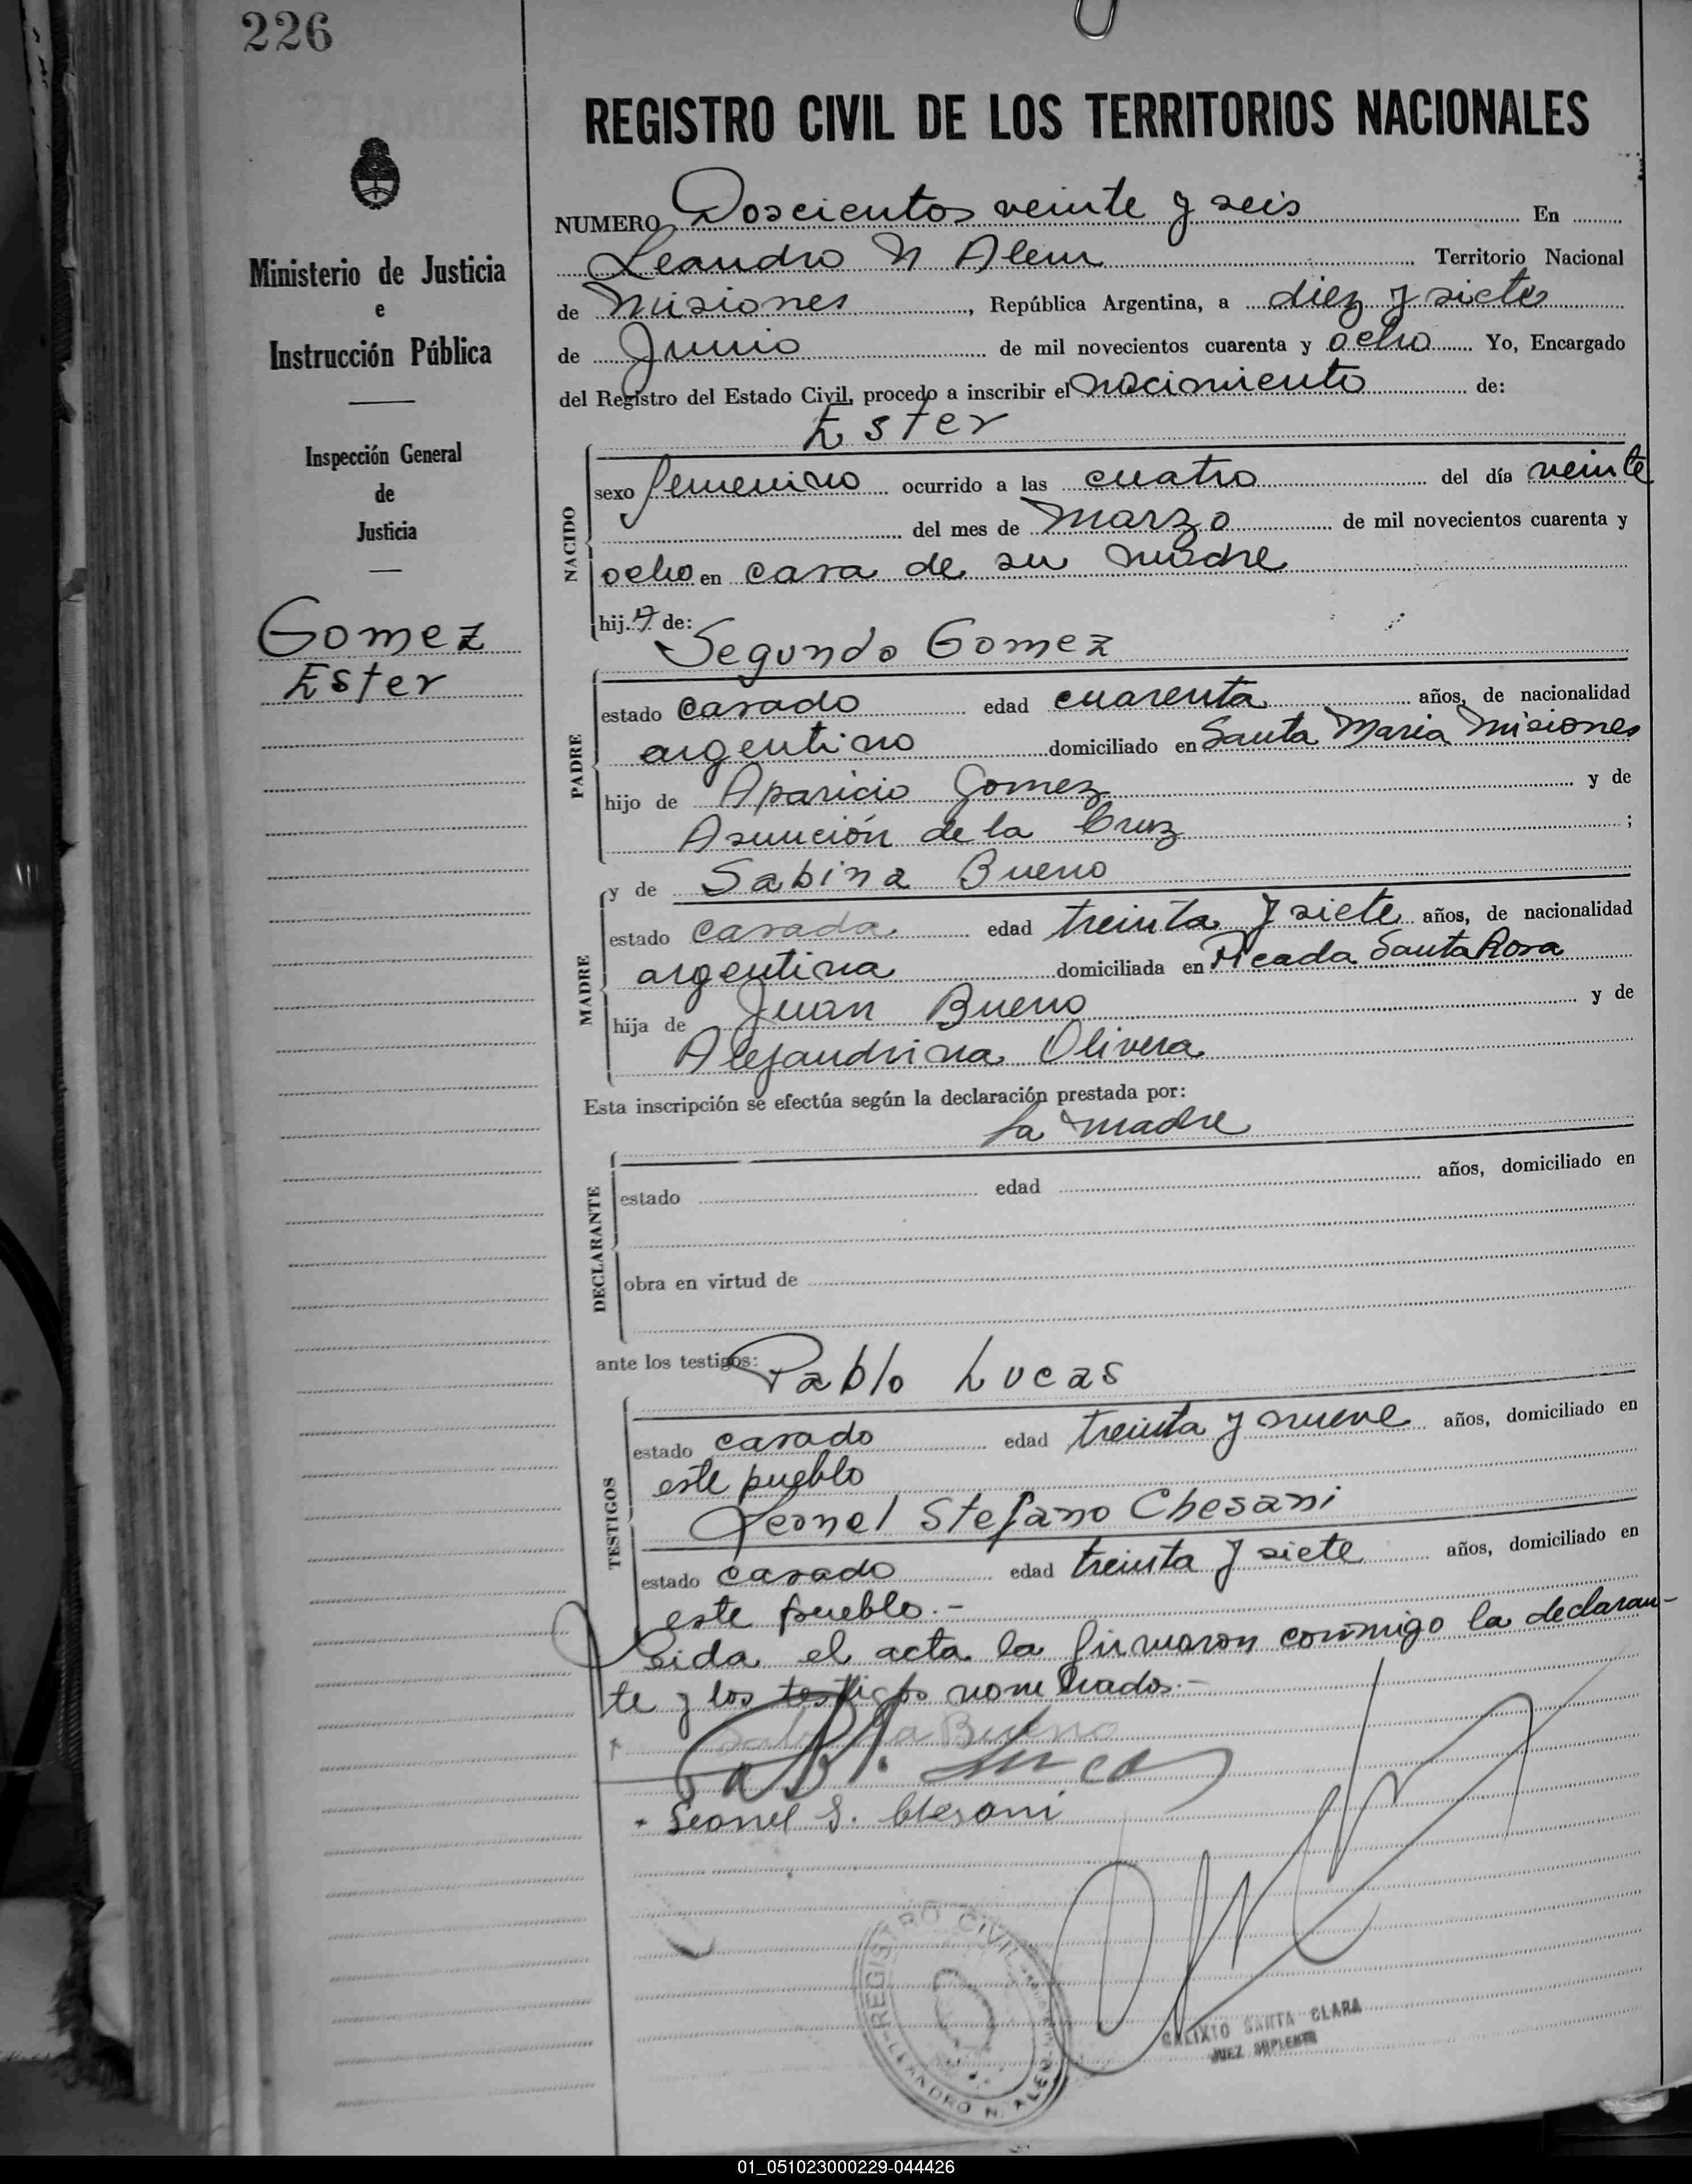 226
REGISTRO CIVIL DE LOS TERRITORIOS NACIONALES
Ministerio de Justicia
e
Instrucción Pública
Inspección General
de
Justicia
Gomez
Ester
NUMERO Doscientos veinte y seis En
Leandro N Alem Territorio Nacional
de Misiones, República Argentina, a diez y siete
de Junio de mil novecientos cuarenta y ocho Yo, Encargado
del Registro del Estado Civil, procedo a inscribir el nacimiento de:
Ester
NACIDO
sexo femenino ocurrido a las cuatro del día veinte
del mes de Marzo de mil novecientos cuarenta y
ocho en casa de su madre
hij a de:
Segundo Gomez
PADRE
estado casado edad cuarenta años, de nacionalidad
argentino domiciliado en Santa Maria Misiones
hijo de Aparicio Gomez y de
Asunción de la Cruz ;
y de Sabina Bueno
MADRE
estado casada edad treinta y siete años, de nacionalidad
argentina domiciliada en Picada Santa Rosa
hija de Juan Bueno y de
Alejandrina Olivera
Esta inscripción se efectúa según la declaración prestada por:
la madre
DECLARANTE
estado edad años, domiciliado en
obra en virtud de
ante los testigos: Pablo Lucas
TESTIGOS
estado casado edad treinta y nueve años, domiciliado en
este pueblo
Leonel Stefano Chesani
estado casado edad treinta y siete años, domiciliado en
este pueblo.-
Leida el acta la firmaron conmigo la declaran-
te y los testigos nombrados.-
Sabina Bueno
Pablo Lucas
Leonel S. Chesani
REGISTRO CIVIL
LEANDRO N. ALEM
CALIXTO SANTA CLARA
JUEZ SUPLENTE
01_051023000229-044426